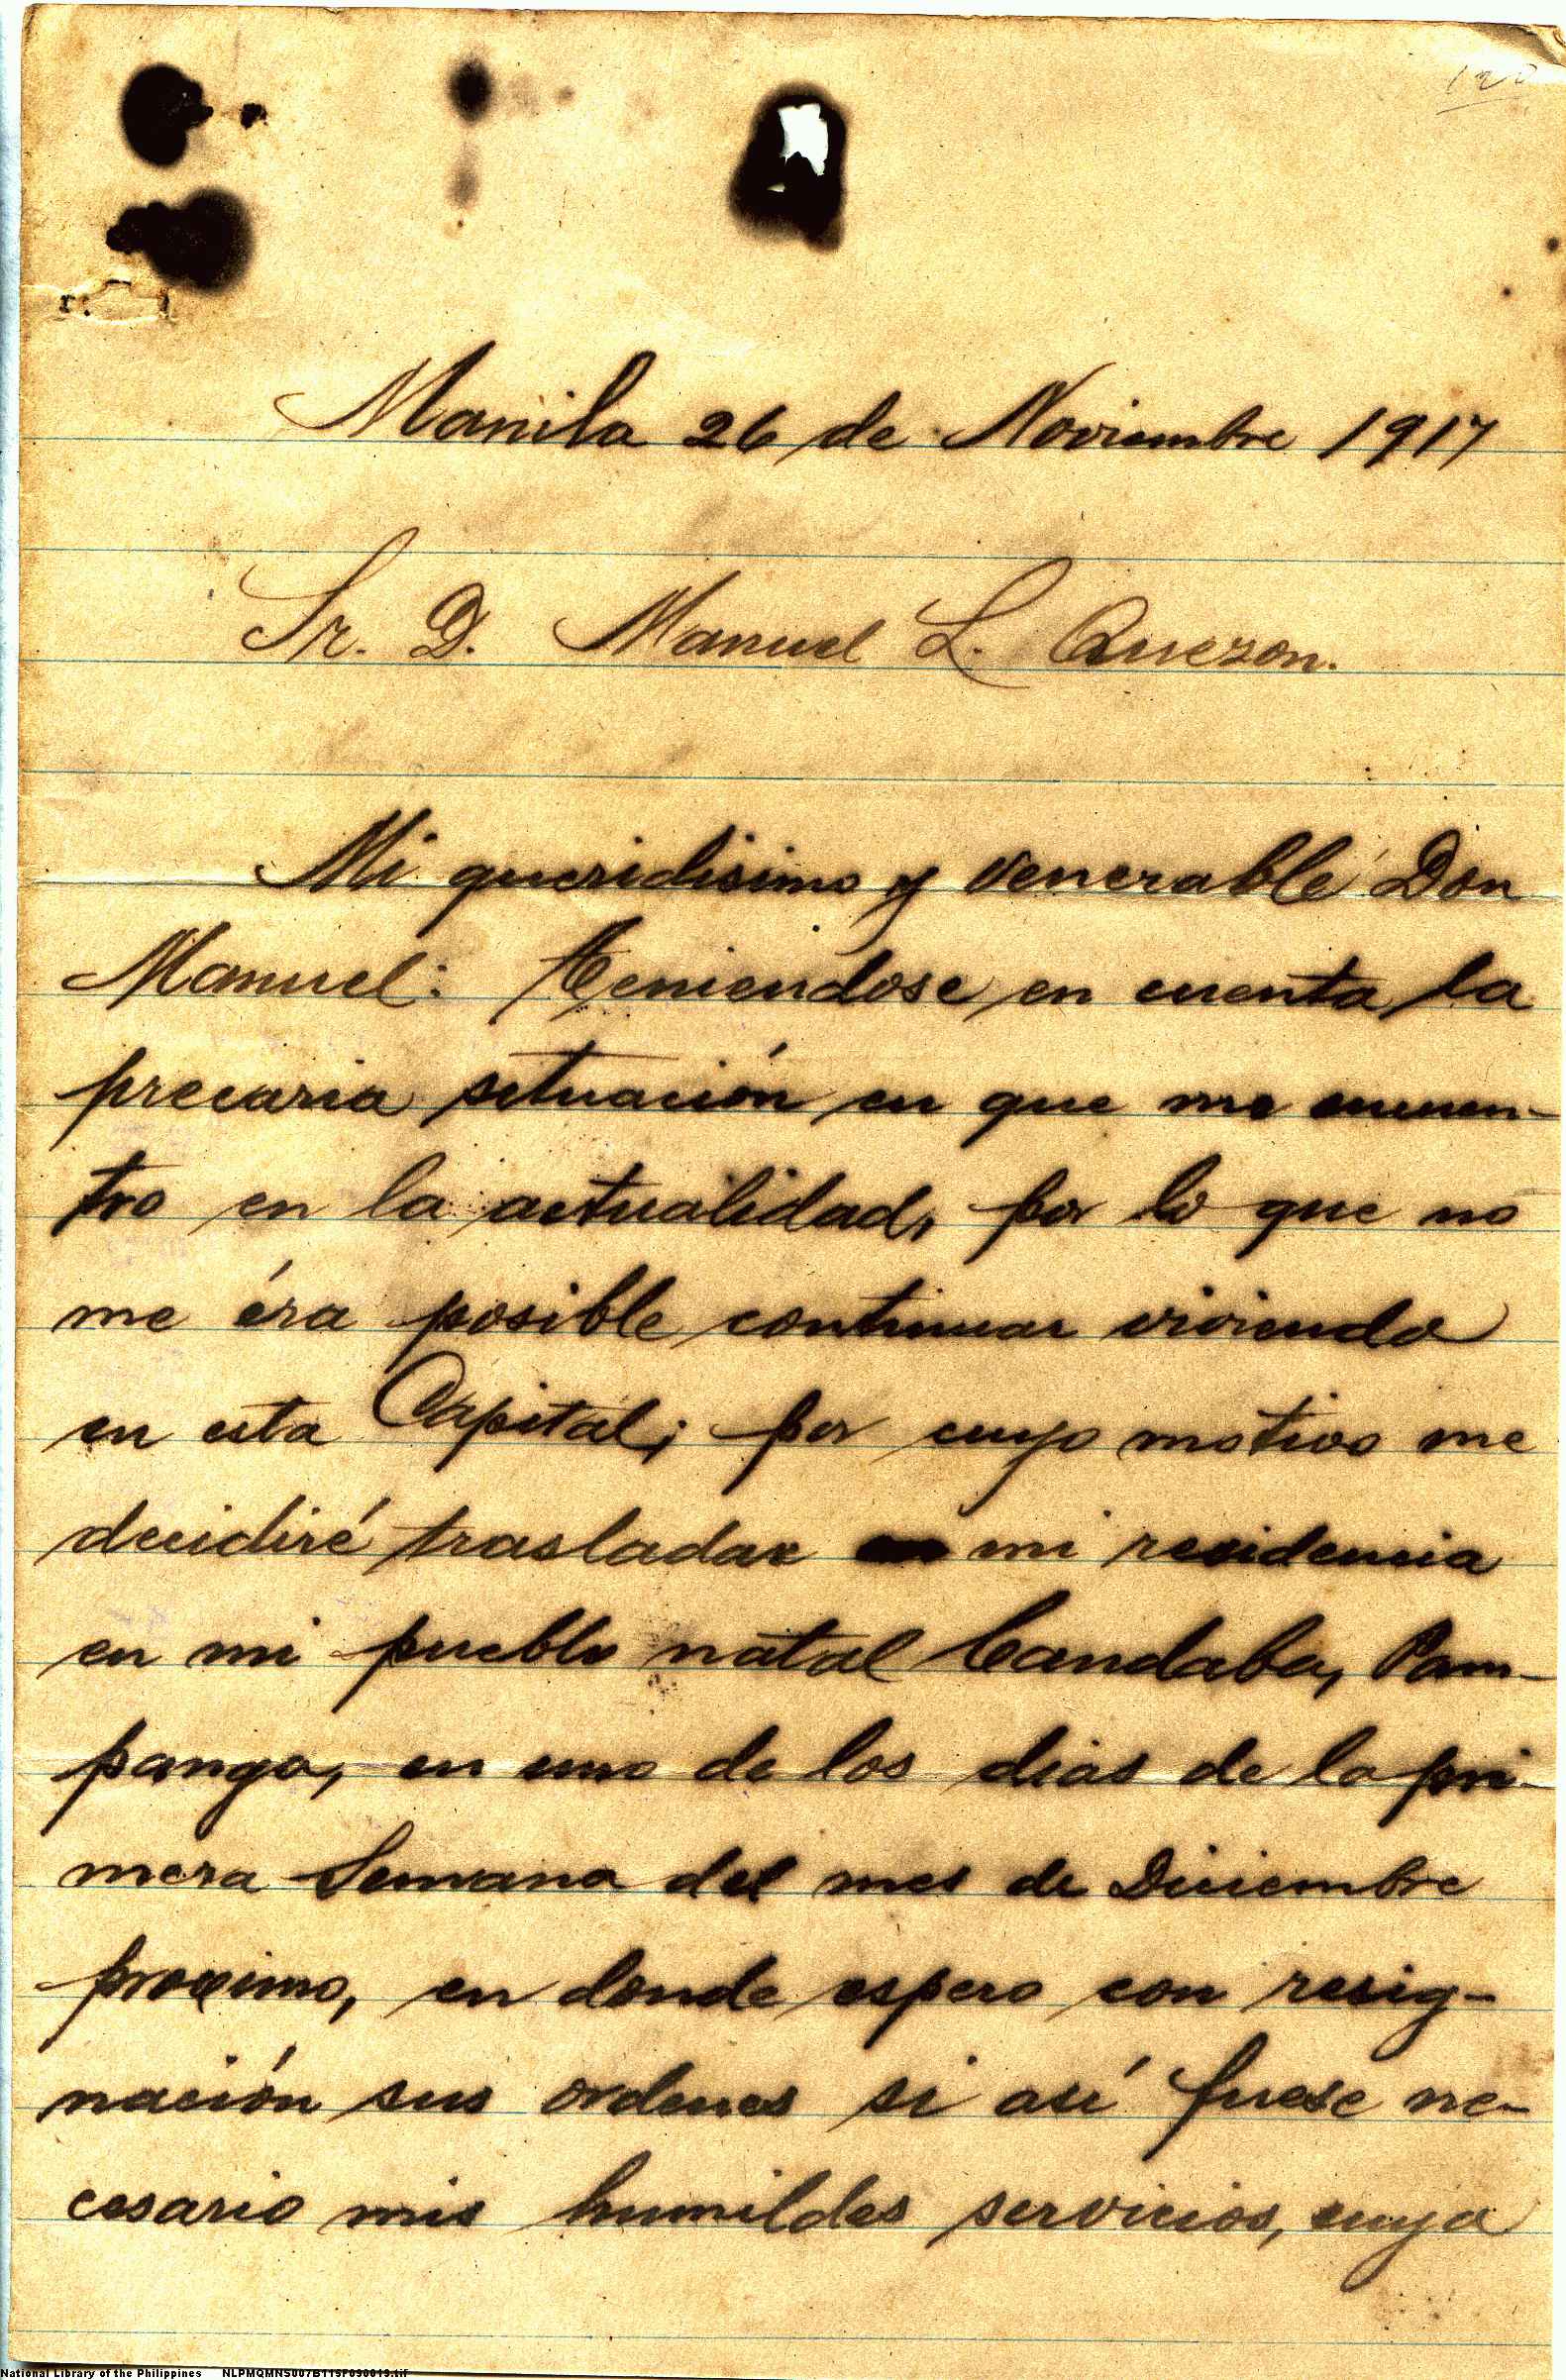 120
Manila 26 de Noviembre 1917
Sr. D. Manuel L. Quezon.
Mi queridisimo y venerable Don
Manuel: Teniendose en cuenta la
precaria situación en que me encuen-
tro en la actualidad, por lo que no
me éra posible continuar viviendo
en esta Capital; por cuyo motivo me
decidiré trasladar mi residencia
en mi pueblo natal Candaba, Pam-
panga, en uno de los dias de la pri-
mera Semana del mes de Diciembre
proximo, en donde espero con resig-
nación sus ordenes si así fuese ne-
cesario mis humildes servicios, cuya
National Library of the Philippines NLPMQMNS007B115F090013.tif